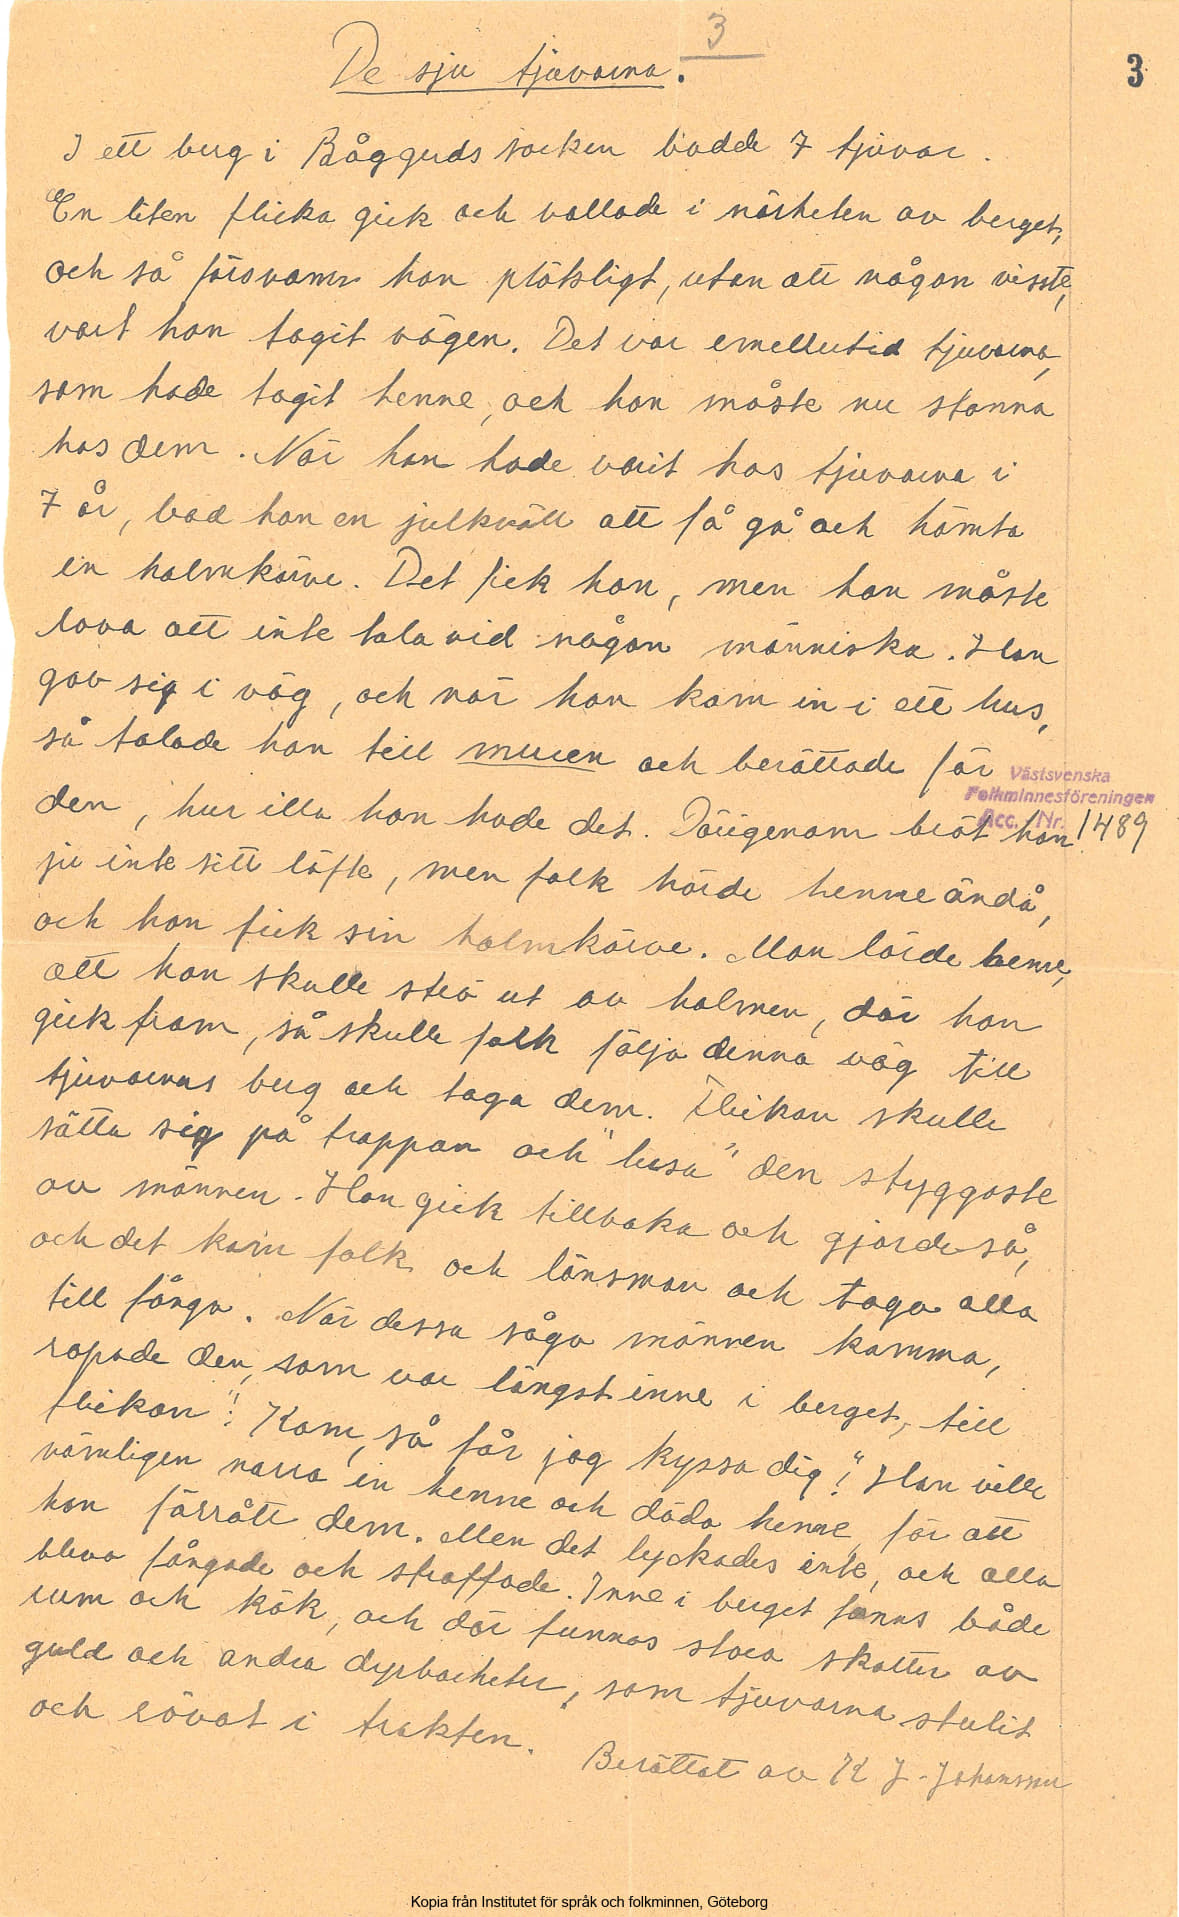 3
De sju tjuvarna.
3
I ett berg i Båggerds socken bodde 7 tjuvar.
En liten flicka gick och vallade i närheten av berget,
och så försvann hon plötsligt, utan att någon visste,
vart hon tagit vägen. Det var emellertid tjuvarna,
som hade tagit henne, och hon måste nu stanna
hos dem. När hon hade varit hos tjuvarna i
7 år, bad hon en julkväll att få gå och hämta
en halmkärve. Det fick hon, men hon måste
lova att inte tala vid någon människa. Hon
gav sig i väg, och när hon kom in i ett hus,
så talade hon till muren och berättade för
den, hur illa hon hade det. Därigenom bröt hon
ju inte sitt löfte, men folk hörde henne ändå,
och hon fick sin halmkärve. Man lärde henne,
att hon skulle strö ut av halmen, där hon
gick fram, så skulle folk följa denna väg till
tjuvarnas berg och taga dem. Flickan skulle
sätta sig på trappan och "lusa" den styggaste
av männen. Hon gick tillbaka och gjorde så,
och det kom folk och länsman och togo alla
till fånga. När dessa sågo männen komma,
ropade den, som var längst inne i berget, till
flickan: "Kom, så får jag kyssa dig!" Han ville
nämligen narra in henne och döda henne, för att
hon förrått dem. Men det lyckades inte, och alla
blevo fångade och straffade. Inne i berget fanns både
rum och kök, och där funnos stora skatter av
guld och andra dyrbarheter, som tjuvarna stulit
och rövat i trakten.
Berättat av K J. Johansson
Västsvenska
Folkminnesföreningen
Acc. Nr. 1489
Kopia från Institutet för språk och folkminnen, Göteborg